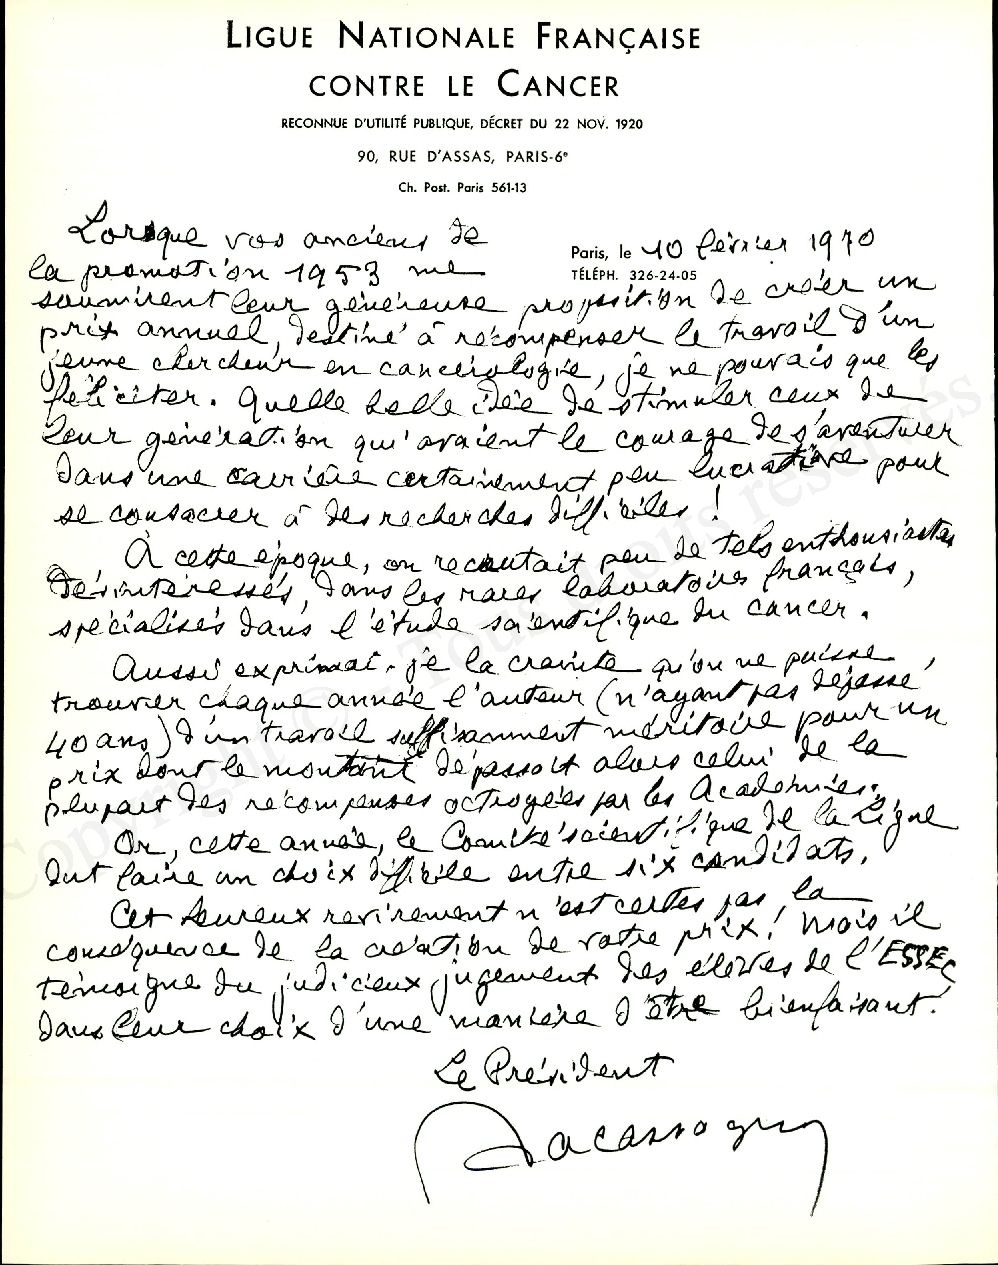 LIGUE NATIONALE FRANÇAISE
CONTRE LE CANCER
RECONNUE D'UTILITÉ PUBLIQUE, DÉCRET DU 22 NOV. 1920
90, RUE D'ASSAS, PARIS-6e
Ch. Post. Paris 561-13
Paris, le 10 février 1970
TÉLÉPH. 326-24-05
Lorsque vos anciens de
la promotion 1953 me
soumirent leur généreuse proposition de créer un
prix annuel, destiné à récompenser le travail d'un
jeune chercheur en cancérologie, je ne pouvais que les
féliciter. Quelle belle idée de stimuler ceux de
leur génération qui avaient le courage de s'aventurer
dans une carrière certainement peu lucrative pour
se consacrer à des recherches difficiles !
À cette époque, on recrutait peu de tels enthousiastes
désintéressés, dans les rares laboratoires français,
spécialisés dans l'étude scientifique du cancer.
Aussi exprimai-je la crainte qu'on ne puisse,
trouver chaque année l'auteur (n'ayant pas dépassé
40 ans) d'un travail suffisamment méritoire pour un
prix dont le montant dépassait alors celui de la
plupart des récompenses octroyées par les Académies.
Or, cette année, le Comité scientifique de la Ligue
dut faire un choix difficile entre six candidats.
Cet heureux revirement n'est certes pas la
conséquence de la création de votre prix ! Mais il
témoigne du judicieux jugement des élèves de l'ESSEC
dans leur choix d'une manière d'être bienfaisant.
Le Président
Lacassagne
Copyright © - Tous droits réservés.